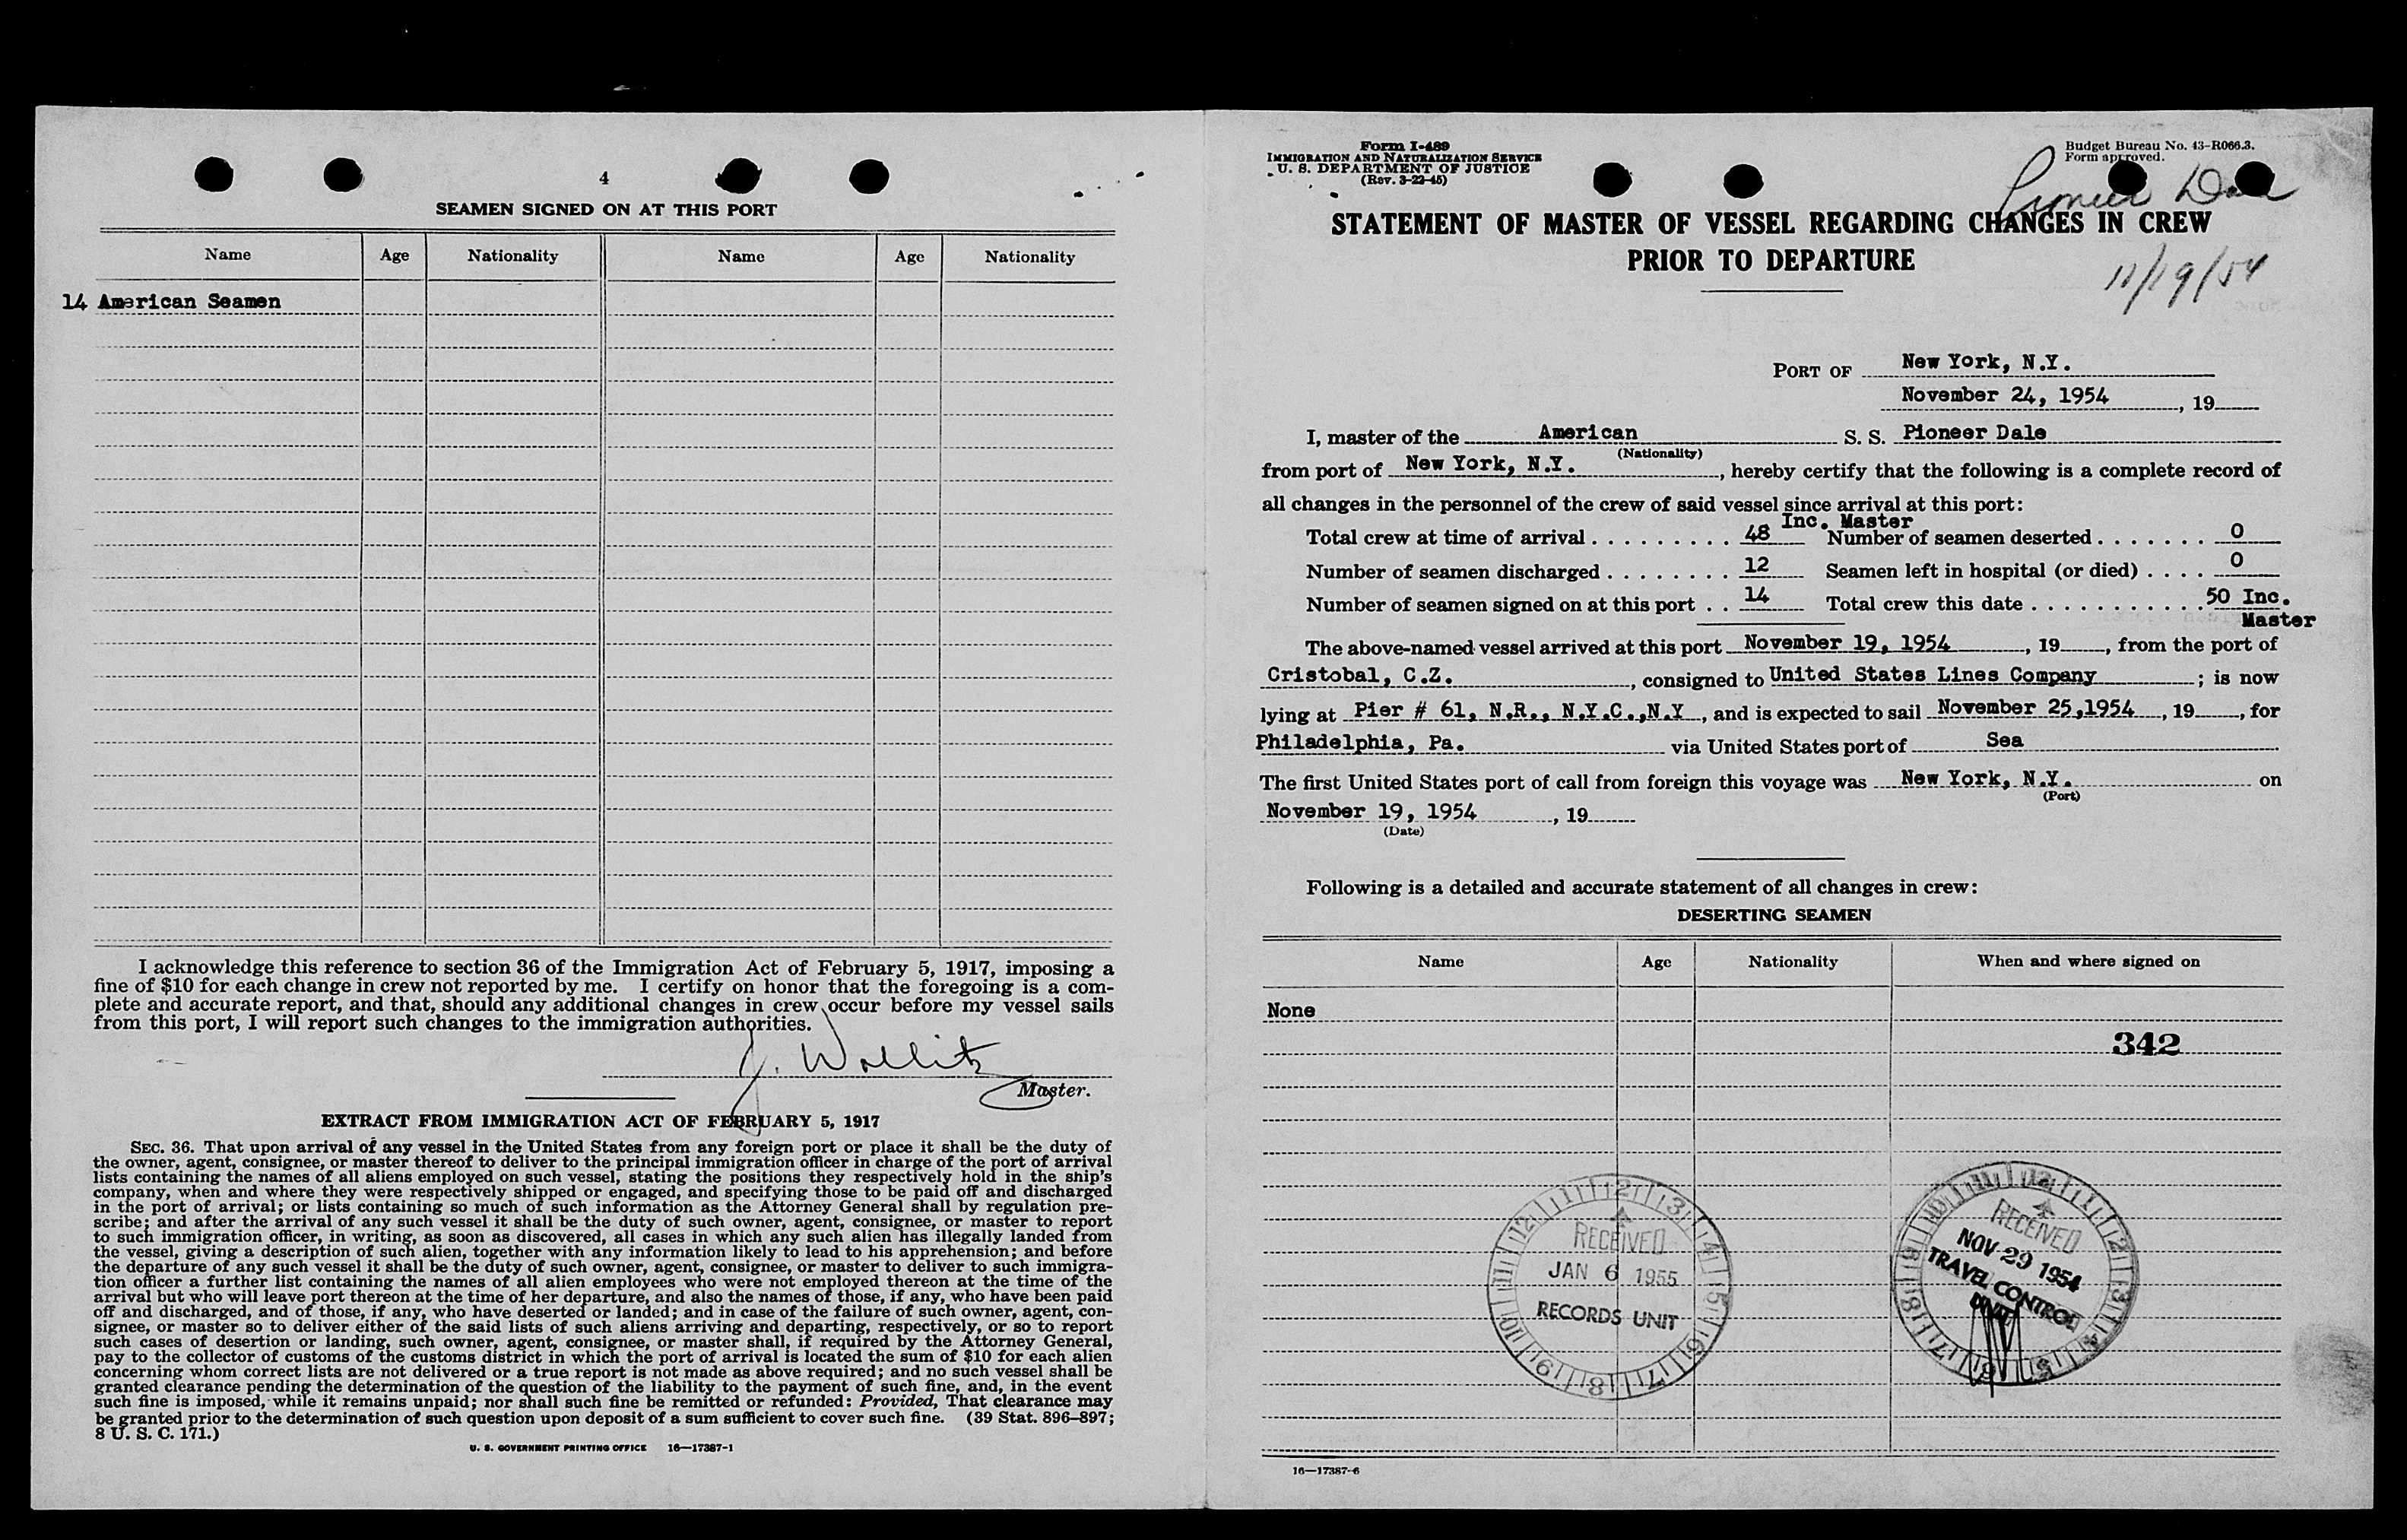 4
SEAMEN SIGNED ON AT THIS PORT
Name Age Nationality Name Age Nationality
14 American Seamen
I acknowledge this reference to section 36 of the Immigration Act of February 5, 1917, imposing a
fine of $10 for each change in crew not reported by me. I certify on honor that the foregoing is a com-
plete and accurate report, and that, should any additional changes in crew occur before my vessel sails
from this port, I will report such changes to the immigration authorities.
J. Wollitz
Master.
EXTRACT FROM IMMIGRATION ACT OF FEBRUARY 5, 1917
SEC. 36. That upon arrival of any vessel in the United States from any foreign port or place it shall be the duty of
the owner, agent, consignee, or master thereof to deliver to the principal immigration officer in charge of the port of arrival
lists containing the names of all aliens employed on such vessel, stating the positions they respectively hold in the ship's
company, when and where they were respectively shipped or engaged, and specifying those to be paid off and discharged
in the port of arrival; or lists containing so much of such information as the Attorney General shall by regulation pre-
scribe; and after the arrival of any such vessel it shall be the duty of such owner, agent, consignee, or master to report
to such immigration officer, in writing, as soon as discovered, all cases in which any such alien has illegally landed from
the vessel, giving a description of such alien, together with any information likely to lead to his apprehension; and before
the departure of any such vessel it shall be the duty of such owner, agent, consignee, or master to deliver to such immigra-
tion officer a further list containing the names of all alien employees who were not employed thereon at the time of the
arrival but who will leave port thereon at the time of her departure, and also the names of those, if any, who have been paid
off and discharged, and of those, if any, who have deserted or landed; and in case of the failure of such owner, agent, con-
signee, or master so to deliver either of the said lists of such aliens arriving and departing, respectively, or so to report
such cases of desertion or landing, such owner, agent, consignee, or master shall, if required by the Attorney General,
pay to the collector of customs of the customs district in which the port of arrival is located the sum of $10 for each alien
concerning whom correct lists are not delivered or a true report is not made as above required; and no such vessel shall be
granted clearance pending the determination of the question of the liability to the payment of such fine, and, in the event
such fine is imposed, while it remains unpaid; nor shall such fine be remitted or refunded: Provided, That clearance may
be granted prior to the determination of such question upon deposit of a sum sufficient to cover such fine. (39 Stat. 896–897;
8 U. S. C. 171.)
U. S. GOVERNMENT PRINTING OFFICE 16—17387-1
Form I-489
IMMIGRATION AND NATURALIZATION SERVICE
U. S. DEPARTMENT OF JUSTICE
(Rev. 3-22-45)
Budget Bureau No. 43-R066.3.
Form approved.
Pioneer Dale
STATEMENT OF MASTER OF VESSEL REGARDING CHANGES IN CREW
PRIOR TO DEPARTURE
11/19/54
PORT OF New York, N.Y.
November 24, 1954, 19
I, master of the American S. S. Pioneer Dale
(Nationality)
from port of New York, N.Y., hereby certify that the following is a complete record of
all changes in the personnel of the crew of said vessel since arrival at this port:
Total crew at time of arrival 48 Inc. Master Number of seamen deserted 0
Number of seamen discharged 12 Seamen left in hospital (or died) 0
Number of seamen signed on at this port 14 Total crew this date 50 Inc.
Master
The above-named vessel arrived at this port November 19, 1954, 19, from the port of
Cristobal, C.Z., consigned to United States Lines Company; is now
lying at Pier # 61, N.R., N.Y.C.,N.Y, and is expected to sail November 25,1954, 19, for
Philadelphia, Pa. via United States port of Sea
The first United States port of call from foreign this voyage was New York, N.Y. on
(Port)
November 19, 1954, 19
(Date)
Following is a detailed and accurate statement of all changes in crew:
DESERTING SEAMEN
Name Age Nationality When and where signed on
None
342
RECEIVED
JAN 6 1955
RECORDS UNIT
RECEIVED
NOV 29 1954
TRAVEL CONTROL
UNIT
16—17387-6